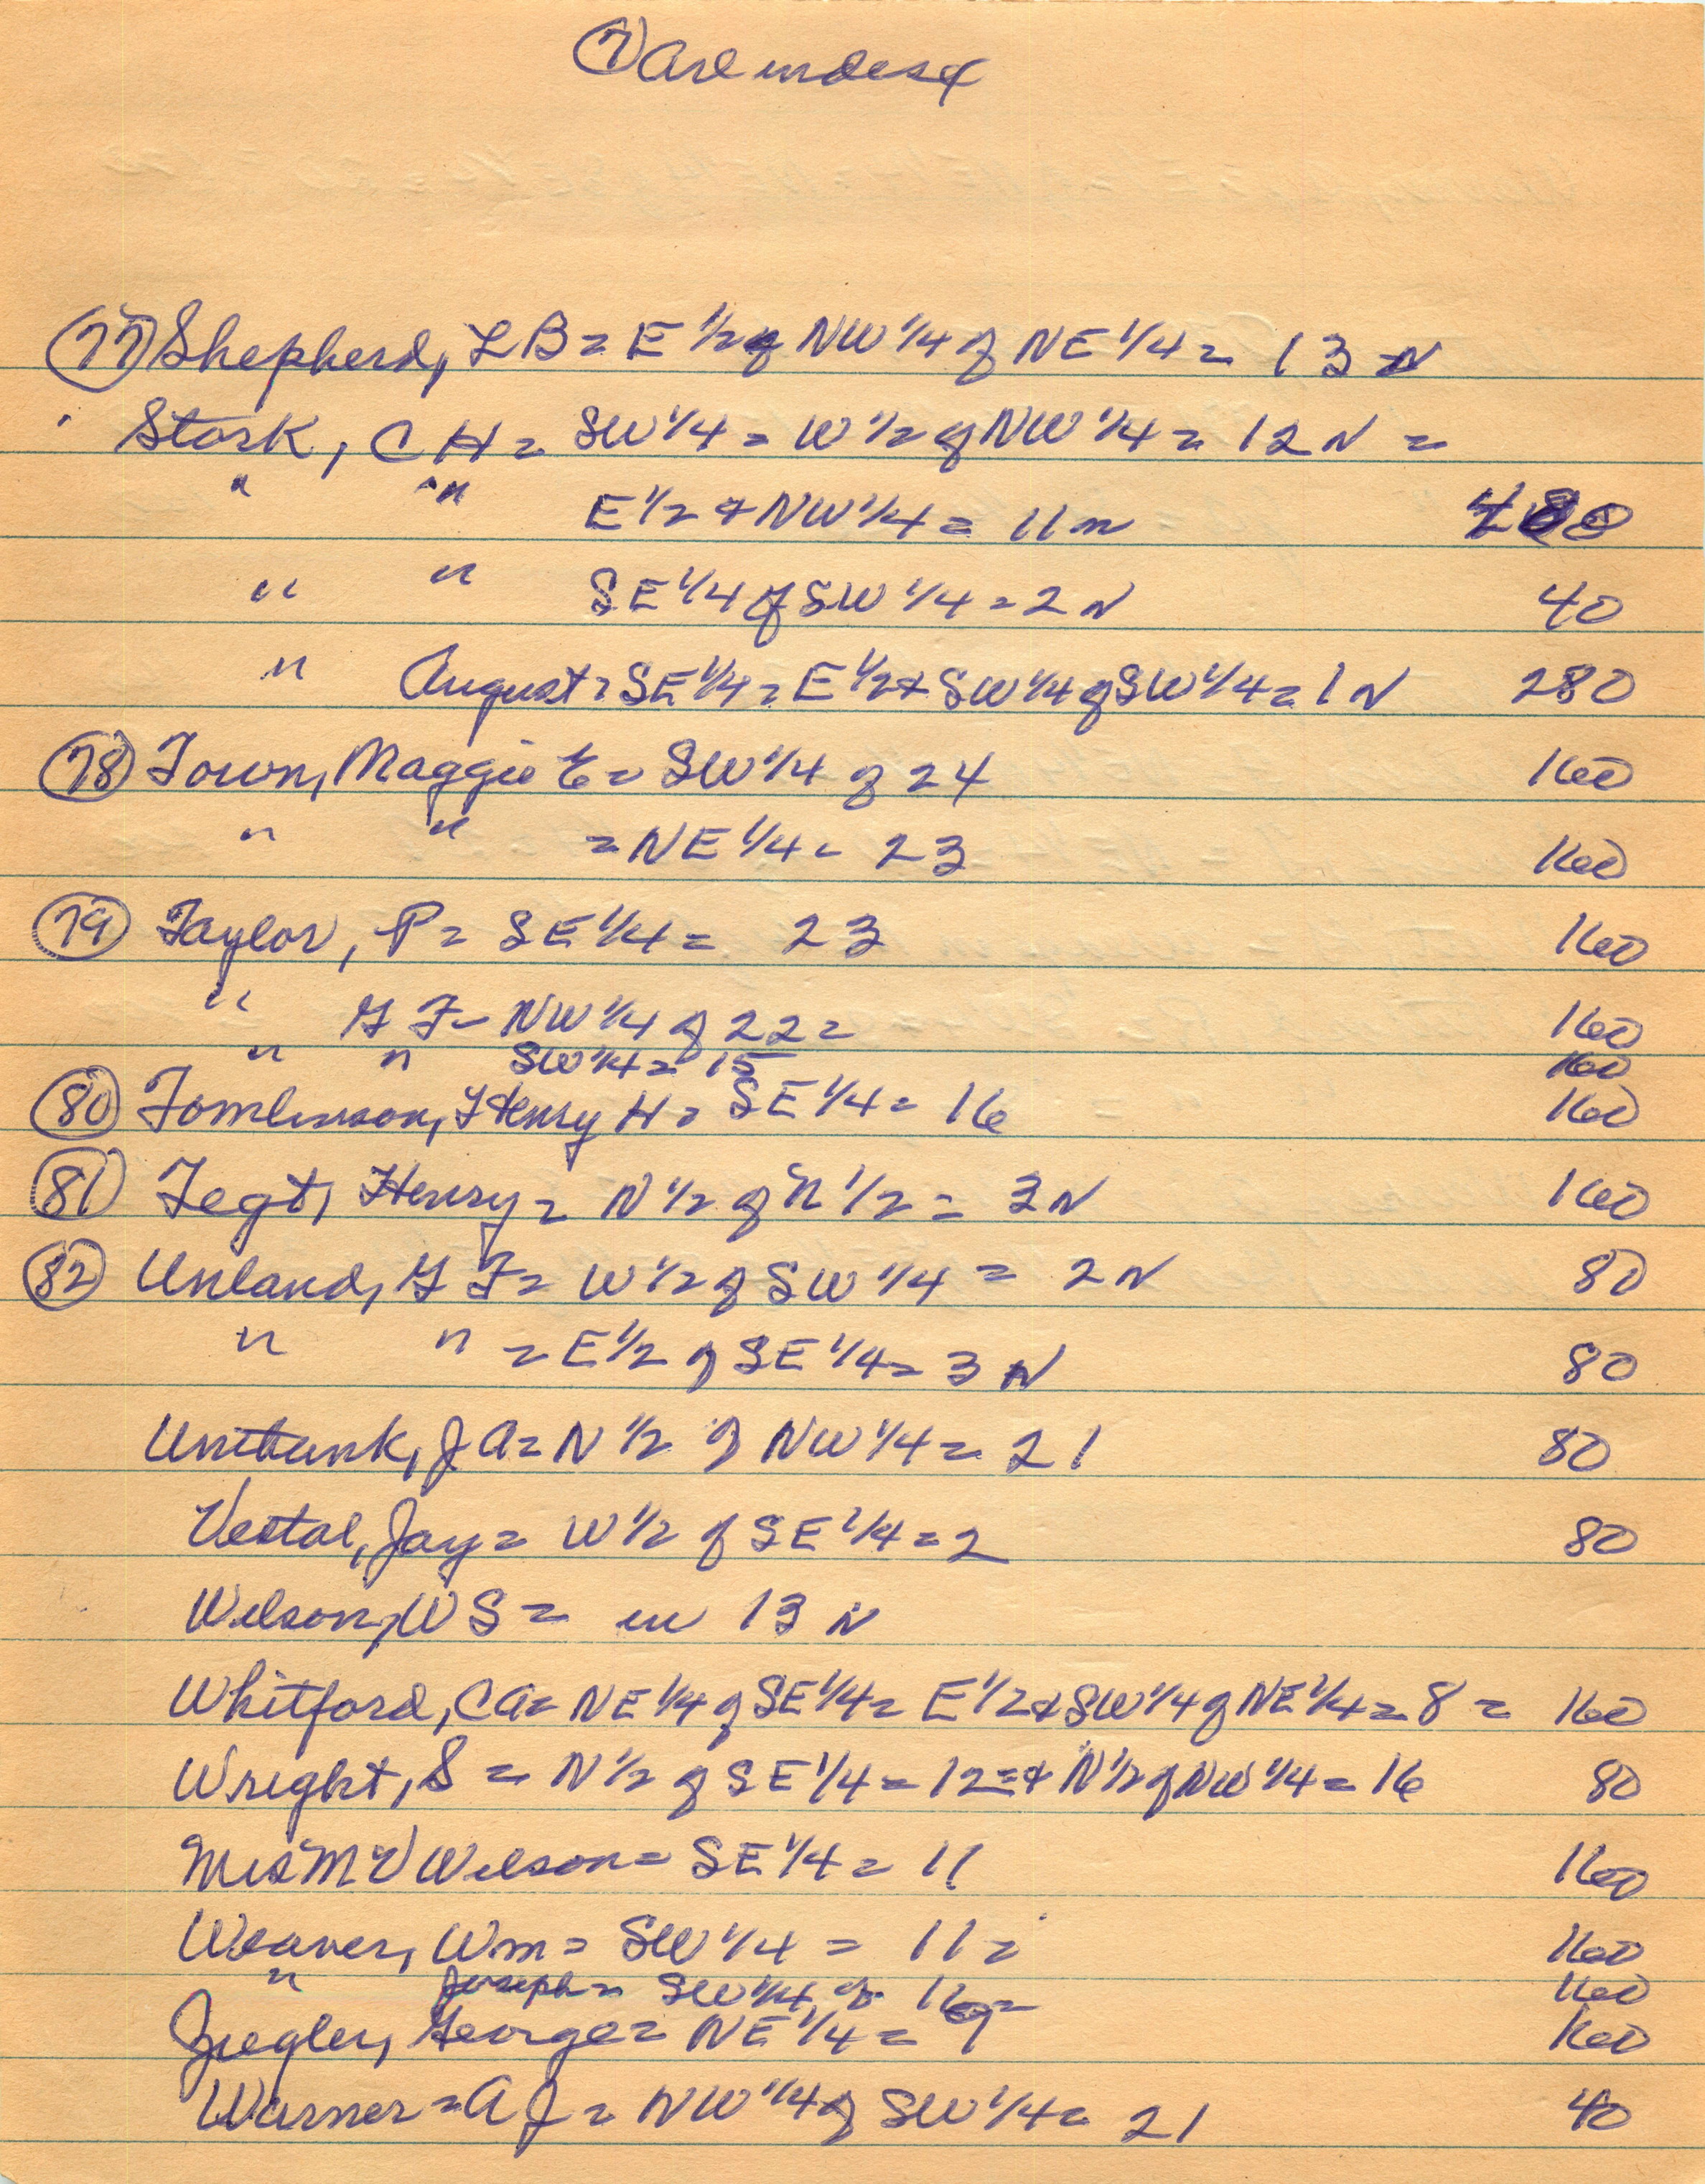 (7) Are indexx
(77) Shepherd, L B = E 1/2 of NW 1/4 of NE 1/4 = 13 N
Stork, C H = SW 1/4 = W 1/2 of NW 1/4 = 12 N =
" " E 1/2 + NW 1/4 = 11 n
" " SE 1/4 of SW 1/4 = 2 N 40
" August = SE 1/4 = E 1/2 + SW 1/4 of SW 1/4 = 1 N 280
(78) Town, Maggie E = SW 1/4 of 24 160
" " = NE 1/4 = 23 160
(79) Taylor, P = SE 1/4 = 23 160
" G F = NW 1/4 of 22 = 160
" " SW 1/4 = 15 160
(80) Tomlinson, Henry H = SE 1/4 = 16 160
(81) Tegt, Henry = N 1/2 of N 1/2 = 3 N 160
(82) Unland, G F = W 1/2 of SW 1/4 = 2 N 80
" " = E 1/2 of SE 1/4 = 3 N 80
J A = N 1/2 of NW 1/4 = 21 80
Vestal, Jay = W 1/2 of SE 1/4 = 2 80
Wilson, W S = in 13 N
Whitford, C A = NE 1/4 of SE 1/4 = E 1/2 + SW 1/4 of NE 1/4 = 8 = 160
Wright, S = N 1/2 of SE 1/4 = 12 = + N 1/2 of NW 1/4 = 16 80
Mrs M V Wilson = SE 1/4 = 11 160
Weaver, Wm = SW 1/4 = 11 = 160
" Joseph = SW 1/4 of 16 = 160
Ziegler, George = NE 1/4 = 9 160
Warner = A J = NW 1/4 of SW 1/4 = 21 40